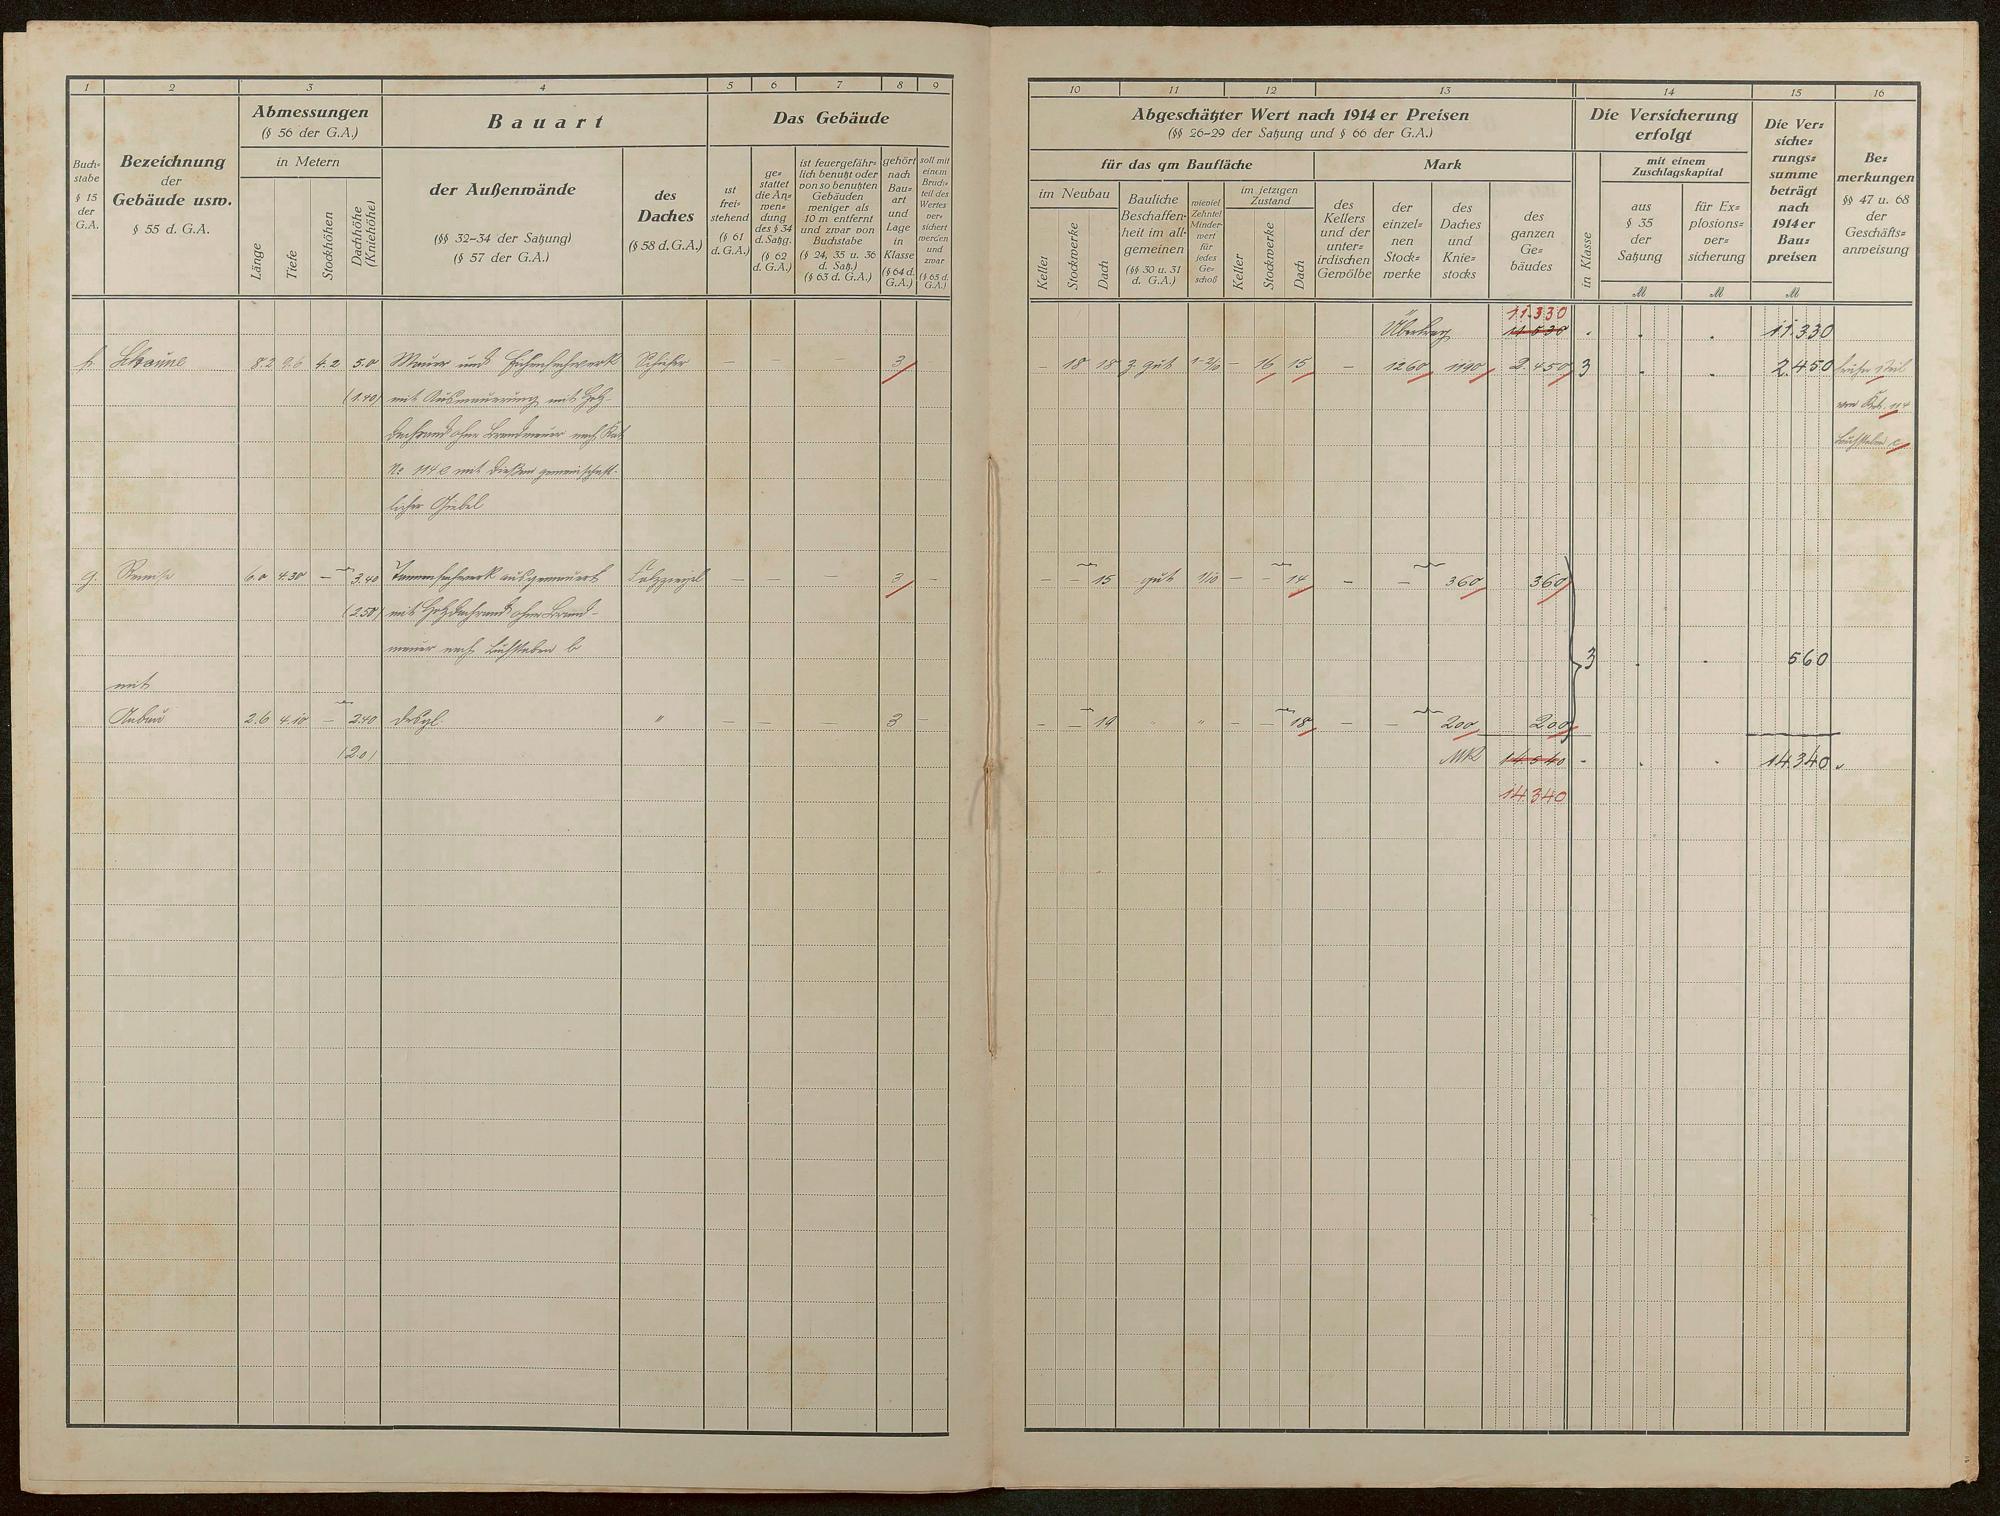 1 2 3 4 5 6 7 8 9
Buch=
stabe
§ 15
der
G.A.
Bezeichnung
der
Gebäude usw.
§ 55 d. G.A.
Abmessungen
(§ 56 der G.A.)
in Metern
Länge
Tiefe
Stockhöhen
Dachhöhe
(Kniehöhe)
Bauart
der Außenwände
(§§ 32-34 der Satzung)
(§ 57 der G.A.)
des
Daches
(§ 58 d. G.A.)
Das Gebäude
ist
frei=
stehend
(§ 61
d. G.A.)
ge=
stattet
die An=
wen=
dung
des § 34
d. Satzg.
(§ 62
d. G.A.)
ist feuergefähr=
lich benutzt oder
von so benutzten
Gebäuden
weniger als
10 m entfernt
und zwar von
Buchstabe
(§ 24, 35 u. 36
d. Satz.)
(§ 63 d. G.A.)
gehört
nach
Bau=
art
und
Lage
in
Klasse
(§ 64 d.
G.A.)
soll mit
einem
Bruch=
teil des
Wertes
ver=
sichert
werden
und
zwar
(§ 65 d.
G.A.)
f. Scheune 8.2 9.6 4.2 5.0 Mauer und Eichenfachwerk Schiefer — — 3
(1.40) mit Ausmauerung mit Holz-
dachrand ohne Brandmauer nach Kat
No 114 e mit diesem gemeinschaft-
licher Giebel
g. Remise 6.0 4.30 — 3.40 Tannenfachwerk ausgemauert Falzziegel — — — 3 —
(2.50) mit Holzdachrand ohne Brand-
mauer nach Buchstaben b
mit
Anbau 2.6 4.10 — 2.40 desgl. " — — — 3 —
(2.0)
10 11 12 13 14 15 16
Abgeschätzter Wert nach 1914 er Preisen
(§§ 26-29 der Satzung und § 66 der G.A.)
für das qm Baufläche
im Neubau
Keller
Stockwerke
Dach
Bauliche
Beschaffen=
heit im all=
gemeinen
(§§ 30 u. 31
d. G.A.)
wieviel
Zehntel
Minder=
wert
für
jedes
Ge=
schoß
im jetzigen
Zustand
Keller
Stockwerke
Dach
Mark
des
Kellers
und der
unter=
irdischen
Gewölbe
der
einzel=
nen
Stock=
werke
des
Daches
und
Knie=
stocks
des
ganzen
Ge=
bäudes
Die Versicherung
erfolgt
in Klasse
mit einem
Zuschlagskapital
aus
§ 35
der
Satzung
für Ex=
plosions=
ver=
sicherung
Die Ver=
siche=
rungs=
summe
beträgt
nach
1914 er
Bau=
preisen
Be=
merkungen
§§ 47 u. 68
der
Geschäfts=
anweisung
M M M
11.330
Übertrag 11 530 . . . 11.330
— 18 18 z. gut 1-2/10 — 16 15 — 1260 1190 2.450 3 . . 2.450 früher Teil
von Kat. 114
Buchstaben e
— — 15 gut 1/10 — — 14 — — 360 360
3 . . 560
— — 19 " " — — 18 — — 200 200
MK 14 540 . . . 14.340
14.340